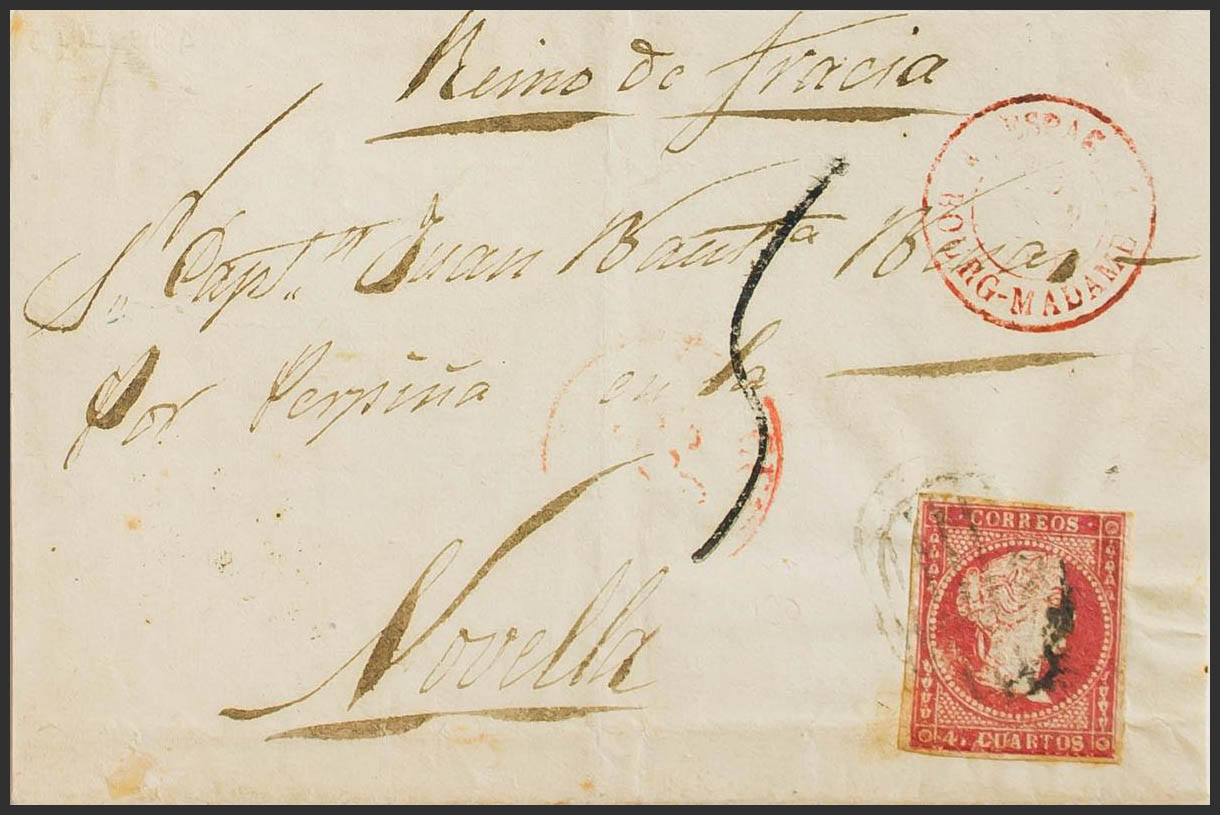 Reino de fracia
Juan Bautta
por Perpiña en la
Novella
ESPAG
BOURG-MADAME
5
CORREOS
4. CUARTOS